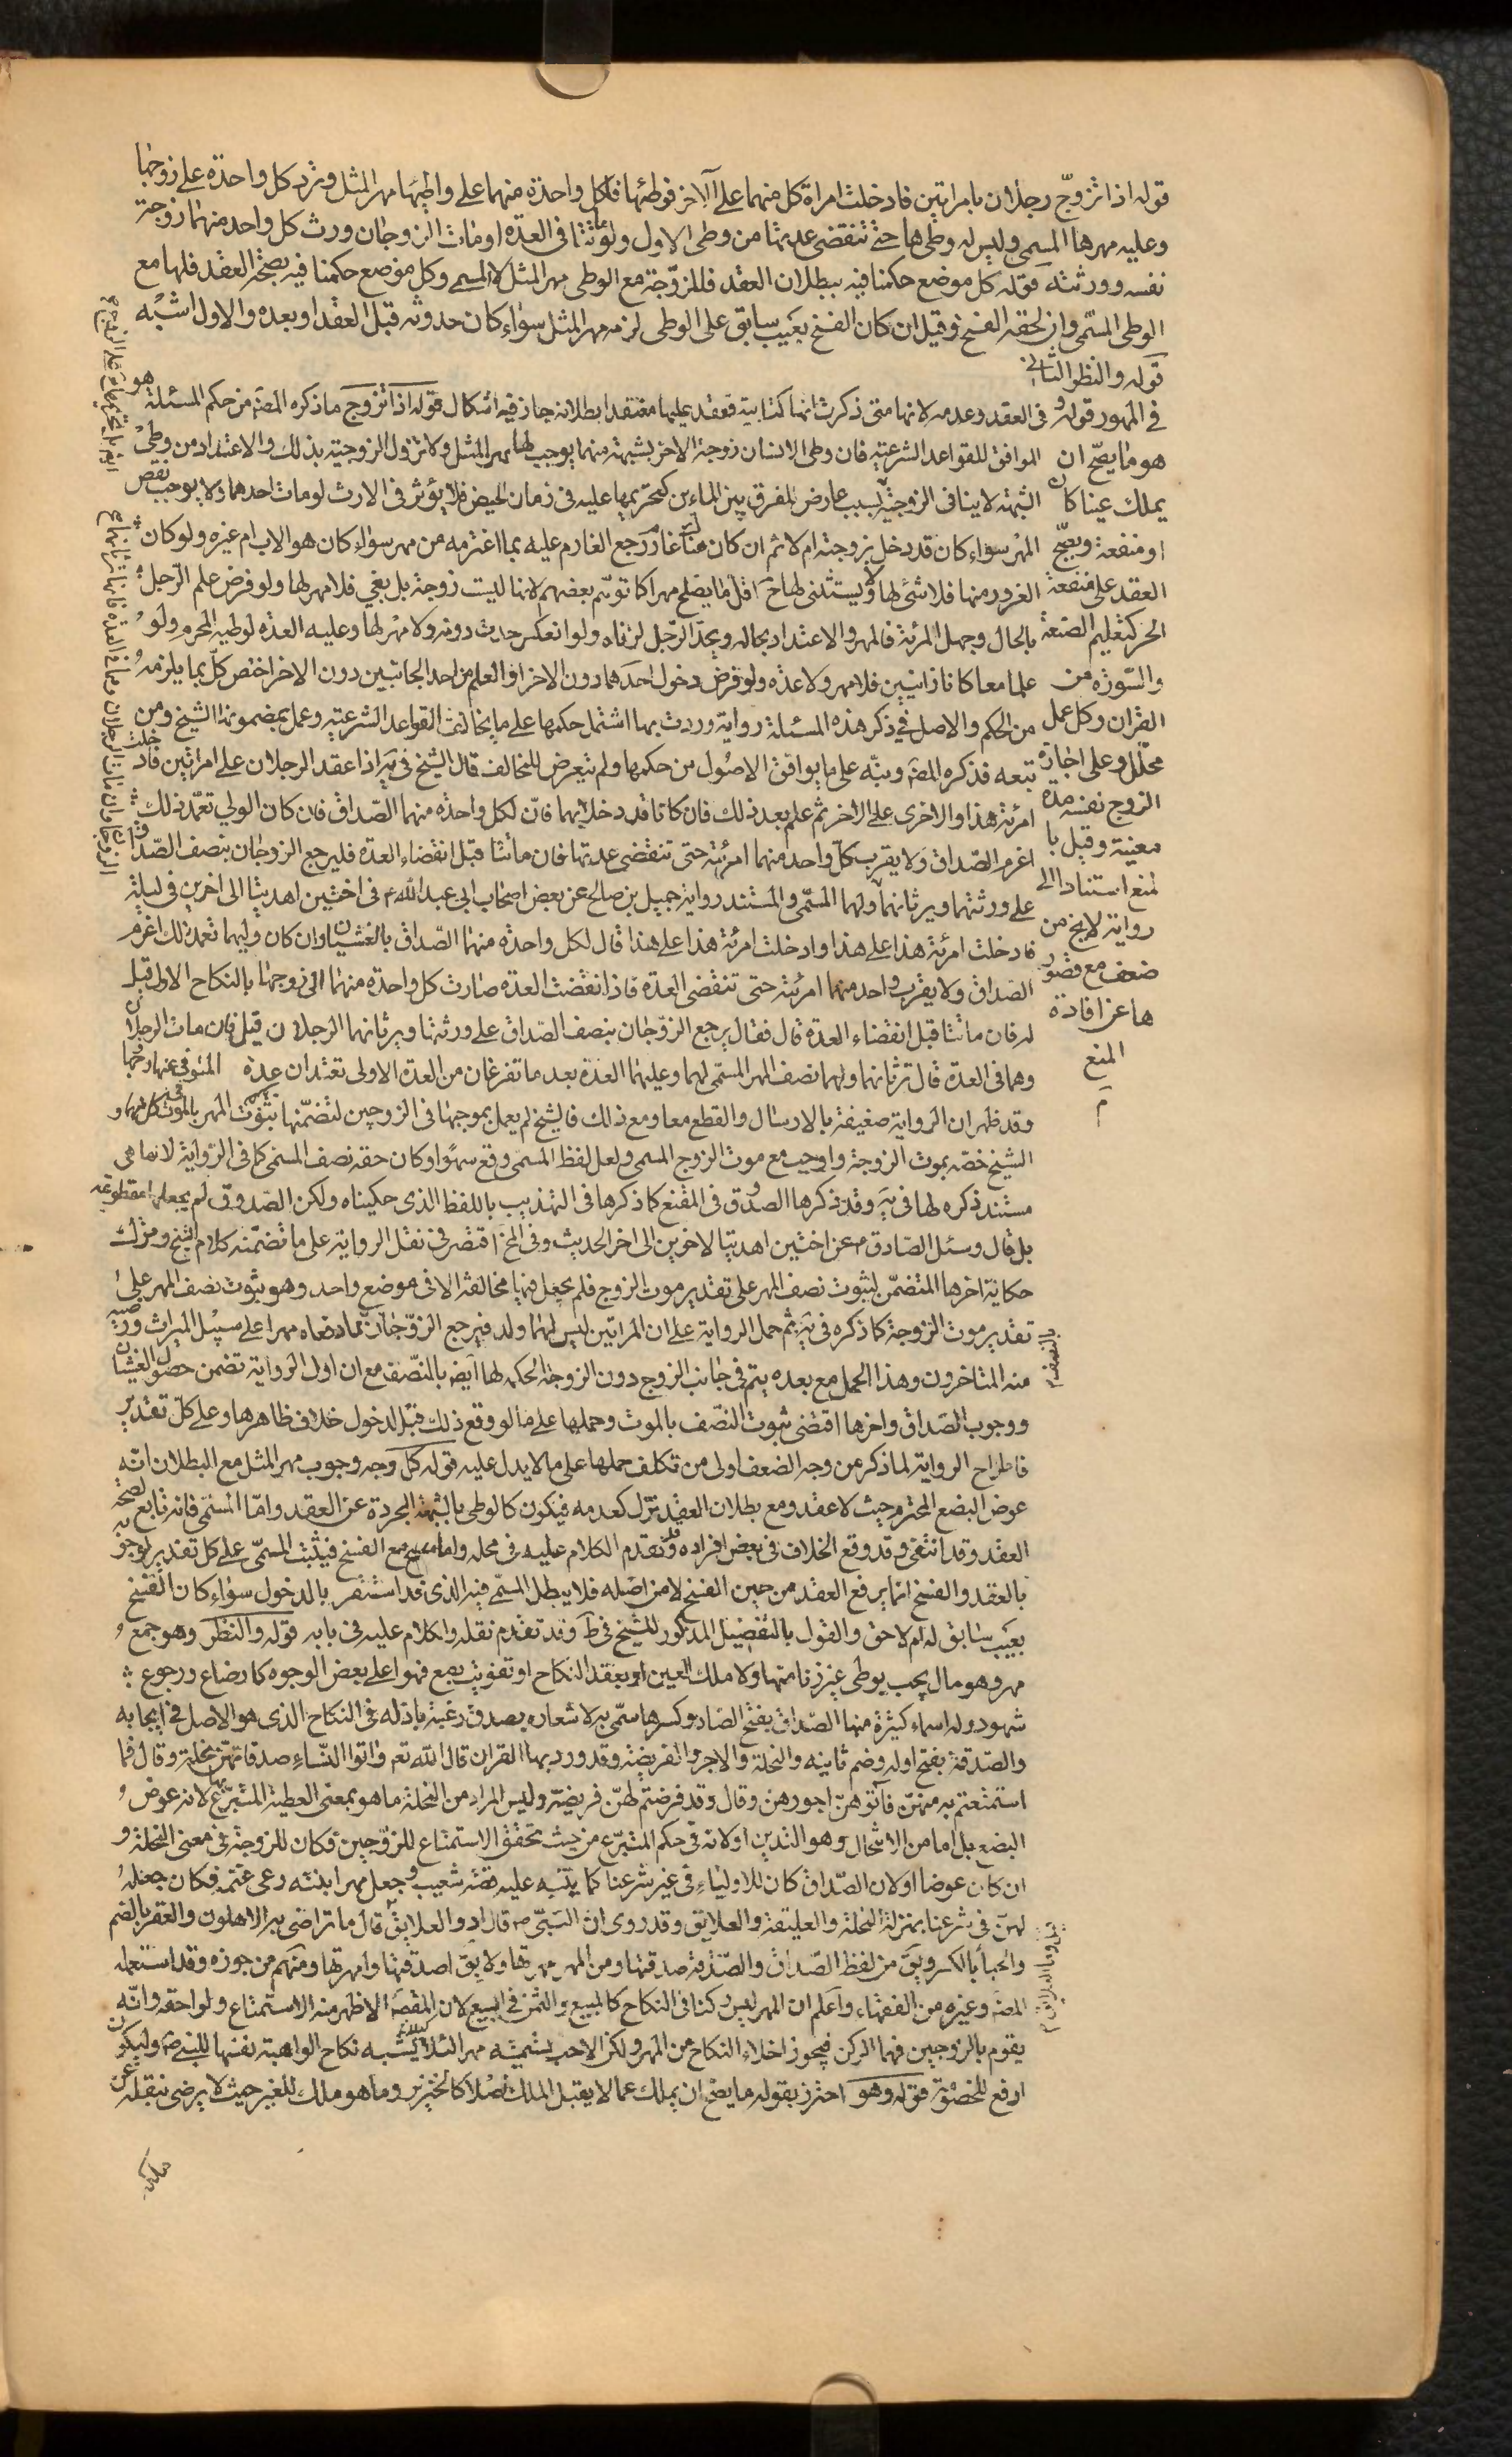 قوله اذا تزوّج رجلان بامراتين فادخلت امراة كل منهما على الآخر فوطئها فلكل واحدة منهما على واطئها مهر المثل وترد كل واحدة على زوجها
وعليه مهرها المسمى وليس له وطئها حتى تنقضى عدتها من وطى الاول ولو ماتتا فى العدة او مات الزوجان ورث كل واحد منهما زوجة
نفسه وورثته قوله كل موضع حكمنا فيه ببطلان العقد فللزوّجة مع الوطى مهر المثل لا المسمى وكل موضع حكمنا فيه بصحة العقد فلها مع
الوطى المسمّى وان لحقه الفسخ وقيل ان كان الفسخ بعيب سابق على الوطى لزمه مهر المثل سواء كان حدوثه قبل العقد او بعده والاول اشبه
قوله والنظر الثانى
فى المهور قوله و
هو ما يصحّ ان
يملك عينا كان
او منفعة ويصحّ
العقد على منفعة
الحر كتعليم الصنعة
والسّورة من
القران وكل عمل
محلّل وعلى اجارة
الزوج نفسه مدة
معينة وقيل با
لمنع استنادا الى
رواية لا يخ من
ضعف مع قصور
ها عن افادة
المنع
م
فى العقد وعدمه لانها متى ذكرت انها كتابية فعقد عليها معتقدا بطلانه جاز فيه اشكال قوله اذا تزوج ما ذكره المصَ من حكم المسئلة هو
الموافق للقواعد الشرعية فان وطى الانسان زوجة الاخر بشبهة منهما يوجب لها مهر المثل ولا تزول الزوجية بذلك والاعتداد من وطئ
الشبهة لا ينافى الزوجية لسبب عارض للفرق بين الماءين كتحريمها عليه فى زمان الحيض فلا يؤثر فى الارث لو مات احدهما ولا يوجب نقص
المهر سواء كان قد دخل بزوجته ام لا ثم ان كان هناك غار رجع الغارم عليه بما اغترمه من مهر سواء كان هو الاب ام غيره ولو كان
الغرور منها فلا شئ لها ولا يستثنى لها ح اقل ما يصلح مهرا كما توهّم بعضهم لانها ليست زوجة بل بغي فلا مهر لها ولو فرض علم الرّجل
بالحال وجهل المرئة فالمهر والاعتداد بحاله ويحدّ الرّجل لزناه ولو انعكس حدت دونه ولا مهر لها وعليه العدّه لوطيه المحرم ولو
علما معا كانا زانيين فلا مهر ولا عدّه ولو فرض دخول احدهما دون الاخر او العلم من احد الجانبين دون الاخر اختص كلّ بما يلزمه
من الحكم والاصل في ذكر هذه المسئلة رواية وردت بها اشتمل حكمها على ما يخالف القواعد الشرعية وعمل بمضمونها الشيخ ومن
تبعه فذكره المصَ ونبّه على ما يوافق الاصول من حكمها ولم يتعرض للمخالف قال الشيخ فى يه اذا عقد الرجلان على امراتين فادخلت
امرئة هذا والاخرى على الاخر ثم علم بعد ذلك فان كانا قد دخلا بهما فانّ لكل واحدة منهما الصّداق فان كان الولي تعمّد ذلك
اغرم الصّداق ولا يقرب كلّ واحد منهما امرئته حتى تنقضى عدتها فان ماتتا قبل انقضاء العدة فليرجع الزوجان بنصف الصّداق
على ورثتهما ويرثانهما ولهما المسمّى والمستند رواية جميل بن صالح عن بعض اصحاب ابى عبد اللّه ع فى اختين اهديتا الى اخوين فى ليلة
فادخلت امرئة هذا على هذا وادخلت امرئة هذا على هذا قال لكل واحدة منهما الصّداق بالغشيان وان كان وليهما تعمد ذلك اغرم
الصّداق ولا يقرب واحد منهما امرئته حتى تنقضى العدّة فاذا انقضت العدّة صارت كل واحدة منهما الى زوجها بالنكاح الاول قيل
له فان ماتتا قبل انقضاء العدّة قال فقال يرجع الزوّجان بنصف الصّداق على ورثتهما ويرثانهما الرجلان قيل فان مات الرجلان
وهما فى العدّة قال ترثانهما ولهما نصف المهر المسمّى لهما وعليهما العدّة بعد ما تفرغان من العدّة الاولى تعتدان عدة المتوفى عنها زوجها
وقد ظهر ان الرّواية ضعيفة بالارسال والقطع معا ومع ذلك فالشيخ لم يعمل بموجبها فى الزوجين لتضمّنها ثبوت المهر بالموت كل منهما و
الشيخ خصّه بموت الزوجة واوجب مع موت الزوج المسمى ولعل لفظ المسمى وقع سهوًا وكان حقه نصف المسمى كما فى الرّواية لانها هى
مستند ذكره لها فى يه وقد ذكرها الصدوق فى المقنع كما ذكرها فى التهذيب باللفظ الذى حكيناه ولكن الصّدوق لم يجعلها مقطوعة
بل قال وسئل الصّادق ع عن اختين اهديتا لاخوين الى اخر الحديث وفى المخ اقتصر فى نقل الرواية على ما تضمّنه كلام الشيخ وترك
حكاية اخرها المتضمّن لثبوت نصف المهر على تقدير موت الزوج فلم يجعل فيها مخالفة الا فى موضع واحد وهو ثبوت نصف المهر على
تقدير موت الزوجة كما ذكره فى يه ثم حمل الرواية على ان المراتين ليس لهما ولد فيرجع الزوّجان بما دفعاه مهرا على سبيل الميراث
منه المتاخرون وهذا الحمل مع بعده يتم فى جانب الزوج دون الزوجة لحكمه لها ايضا بالنّصف مع ان اول الرواية تضمن حصول الغشيان
ووجوب الصّداق واخرها اقتضى ثبوت النّصف بالموت وحملها على ما لو وقع ذلك قبل الدخول خلاف ظاهرها وعلى كلّ تقدير
فاطراح الرواية لما ذكر من وجه الضعف اولى من تكلف حملها على ما لا يدل عليه قوله كل وجه وجوب مهر المثل مع البطلان انّه
عوض البضع المحترم حيث لا عقد ومع بطلان العقد تنزّل كعدمه فيكون كالوطى بالشبهة المجردة عن العقد وامّا المسمّى فانه تابع لصحة
العقد وقد انتفى وقد وقع الخلاف فى بعض افراده وقد تقدم الكلام عليه فى محله واما مع الفسخ فيثبت المسمّى على كل تقدير لوجوبه
بالعقد والفسخ انما يرفع العقد من حين الفسخ لا من اصله فلا يبطل المسمّى فيه الذى قد استقر بالدخول سواء كان الفسخ
بعيب سابق له ام لاحق والقول بالتفصيل المذكور للشيخ فى ط وقد تقدم نقله والكلام عليه فى بابه قوله والنظر وهو جمع
مهر وهو مال يجب بوطى غير زنا منها ولا ملك العين او بعقد النكاح او تفويت بضع قهرا على بعض الوجوه كارضاع ورجوع
شهود وله اسماء كثيرة منها الصّداق بفتح الصّاد وكسرها سمّى به لاشعاره بصدق رغبة باذله فى النكاح الذى هو الاصل فى ايجابه
والصّدقة بفتح اوله وضم ثانيه والنحلة والاجر والفريضة وقد ورد بها القران قال اللّه تعم واتوا النّساء صدقاتهنّ نحلة وقال فما
استمتعتم به منهنّ فآتوهنّ اجورهن وقال وقد فرضتم لهنّ فريضة وليس المراد من النحلة ما هو بمعنى العطية المتبرّع بها لانه عوض
البضع بل اما من الانتحال وهو التدين او لانه فى حكم المتبرّع من حيث تحقق الاستمتاع للزوّجين فكان للزوجة فى معنى النحلة و
ان كان عوضا او لان الصّداق كان للاولياء فى غير شرعنا كما ينبّه عليه قصّة شعيب وجعل مهر ابنته رعى غنمه فكان جعله
لهنّ فى شرعنا بمنزلة النحلة والعليقة والعلايق وقد روى ان النبىّ ص قال ادوا العلايق قال ما تراضى به الاهلون والعقر بالضم
والحباء بالكسر ويق من لفظ الصّداق والصّدقة صدقتها ومن المهر مهرتها ولا يق اصدقتها وامهرتها ومنهم من جوزه وقد استعمله
المصَ وغيره من الفقهاء واعلم ان المهر ليس ركنا فى النكاح كالمبيع والثمن فى البيع لان المقصَ الاظهر منه الاستمتاع ولواحقه وانّه
يقوم بالزوجين فهما الركن فيجوز اخلاء النكاح عن المهر ولكن الاحب تسميته مهر لئلا يشبه نكاح الواهبة نفسها للنبى ص وليكون
ادفع للخصومة قوله وهو احترز بقوله ما يصح ان يملك عما لا يقبل الملك اصلا كالخنزير وما هو ملك للغير حيث لا يرضى بنقله عن
ملكه